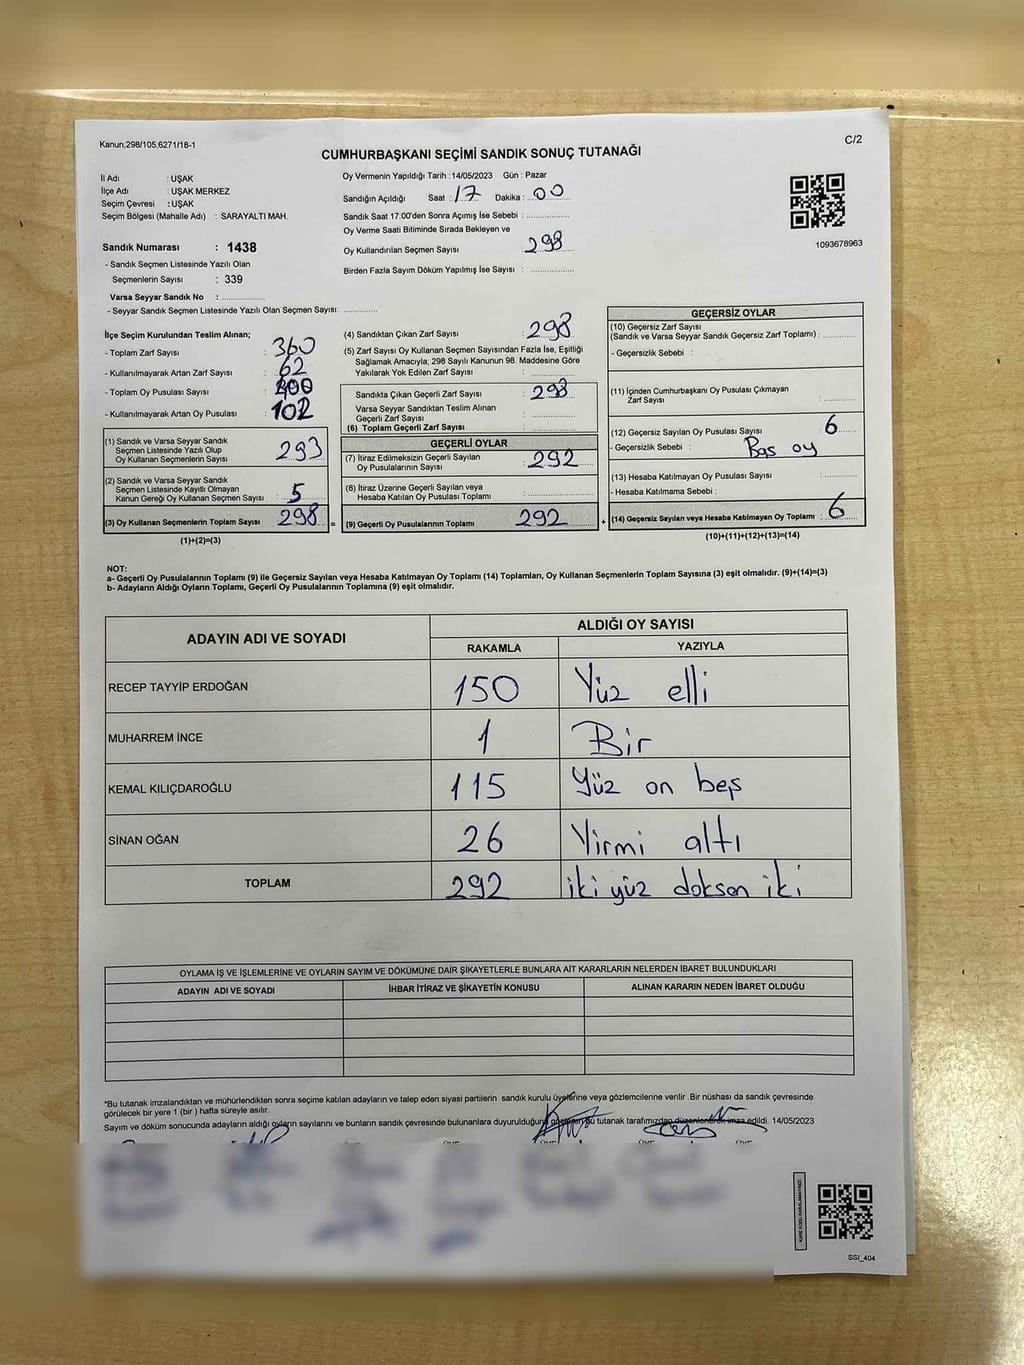 Kanun;298/105,6271/18-1
C/2
CUMHURBAŞKANI SEÇİMİ SANDIK SONUÇ TUTANAĞI
İl Adı : UŞAK
İlçe Adı : UŞAK MERKEZ
Seçim Çevresi : UŞAK
Seçim Bölgesi (Mahalle Adı) : SARAYALTI MAH.
Sandık Numarası : 1438
- Sandık Seçmen Listesinde Yazılı Olan
Seçmenlerin Sayısı : 339
Varsa Seyyar Sandık No : ....................
- Seyyar Sandık Seçmen Listesinde Yazılı Olan Seçmen Sayısı: ...............
Oy Vermenin Yapıldığı Tarih :14/05/2023 Gün : Pazar
Sandığın Açıldığı Saat : 17 Dakika : 00
Sandık Saat 17:00'den Sonra Açımış İse Sebebi : ...................
Oy Verme Saati Bitiminde Sırada Bekleyen ve
Oy Kullandırılan Seçmen Sayısı : 298
Birden Fazla Sayım Döküm Yapılmış İse Sayısı : ...................
1093678963
İlçe Seçim Kurulundan Teslim Alınan;
- Toplam Zarf Sayısı : 360
- Kullanılmayarak Artan Zarf Sayısı : 62
- Toplam Oy Pusulası Sayısı : 400
- Kullanılmayarak Artan Oy Pusulası : 102
(1) Sandık ve Varsa Seyyar Sandık
Seçmen Listesinde Yazılı Olup
Oy Kullanan Seçmenlerin Sayısı : 293
(2) Sandık ve Varsa Seyyar Sandık
Seçmen Listesinde Kayıtlı Olmayan
Kanun Gereği Oy Kullanan Seçmen Sayısı : 5
(3) Oy Kullanan Seçmenlerin Toplam Sayısı : 298 =
(1)+(2)=(3)
(4) Sandıktan Çıkan Zarf Sayısı : 298
(5) Zarf Sayısı Oy Kullanan Seçmen Sayısından Fazla İse, Eşitliği
Sağlamak Amacıyla; 298 Sayılı Kanunun 98. Maddesine Göre
Yakılarak Yok Edilen Zarf Sayısı : ...................
Sandıkta Çıkan Geçerli Zarf Sayısı : 298
Varsa Seyyar Sandıktan Teslim Alınan
Geçerli Zarf Sayısı : ...................
(6) Toplam Geçerli Zarf Sayısı : ...................
GEÇERLİ OYLAR
(7) İtiraz Edilmeksizin Geçerli Sayılan
Oy Pusulalarının Sayısı : 292
(8) İtiraz Üzerine Geçerli Sayılan veya
Hesaba Katılan Oy Pusulası Toplamı : ...................
(9) Geçerli Oy Pusulalarının Toplamı : 292 +
GEÇERSİZ OYLAR
(10) Geçersiz Zarf Sayısı
(Sandık ve Varsa Seyyar Sandık Geçersiz Zarf Toplamı) : ..............
- Geçersizlik Sebebi :
(11) İçinden Cumhurbaşkanı Oy Pusulası Çıkmayan
Zarf Sayısı : ..............
(12) Geçersiz Sayılan Oy Pusulası Sayısı : 6
- Geçersizlik Sebebi : Boş oy
(13) Hesaba Katılmayan Oy Pusulası Sayısı : ..............
- Hesaba Katılmama Sebebi :
(14) Geçersiz Sayılan veya Hesaba Katılmayan Oy Toplamı : 6
(10)+(11)+(12)+(13)=(14)
NOT:
a- Geçerli Oy Pusulalarının Toplamı (9) ile Geçersiz Sayılan veya Hesaba Katılmayan Oy Toplamı (14) Toplamları, Oy Kullanan Seçmenlerin Toplam Sayısına (3) eşit olmalıdır. (9)+(14)=(3)
b- Adayların Aldığı Oyların Toplamı, Geçerli Oy Pusulalarının Toplamına (9) eşit olmalıdır.
ADAYIN ADI VE SOYADI
ALDIĞI OY SAYISI
RAKAMLA YAZIYLA
RECEP TAYYİP ERDOĞAN 150 Yüz elli
MUHARREM İNCE 1 Bir
KEMAL KILIÇDAROĞLU 115 Yüz on beş
SİNAN OĞAN 26 Yirmi altı
TOPLAM 292 iki yüz doksan iki
OYLAMA İŞ VE İŞLEMLERİNE VE OYLARIN SAYIM VE DÖKÜMÜNE DAİR ŞİKAYETLERLE BUNLARA AİT KARARLARIN NELERDEN İBARET BULUNDUKLARI
ADAYIN ADI VE SOYADI İHBAR İTİRAZ VE ŞİKAYETİN KONUSU ALINAN KARARIN NEDEN İBARET OLDUĞU
*Bu tutanak imzalandıktan ve mühürlendikten sonra seçime katılan adayların ve talep eden siyasi partilerin sandık kurulu üyelerine veya gözlemcilerine verilir .Bir nüshası da sandık çevresinde
görülecek bir yere 1 (bir ) hafta süreyle asılır.
Sayım ve döküm sonucunda adayların aldığı oyların sayılarını ve bunların sandık çevresinde bulunanlara duyurulduğunu bu tutanak tarafımızdan düzenlenerek imza edildi. 14/05/2023
SSI_404